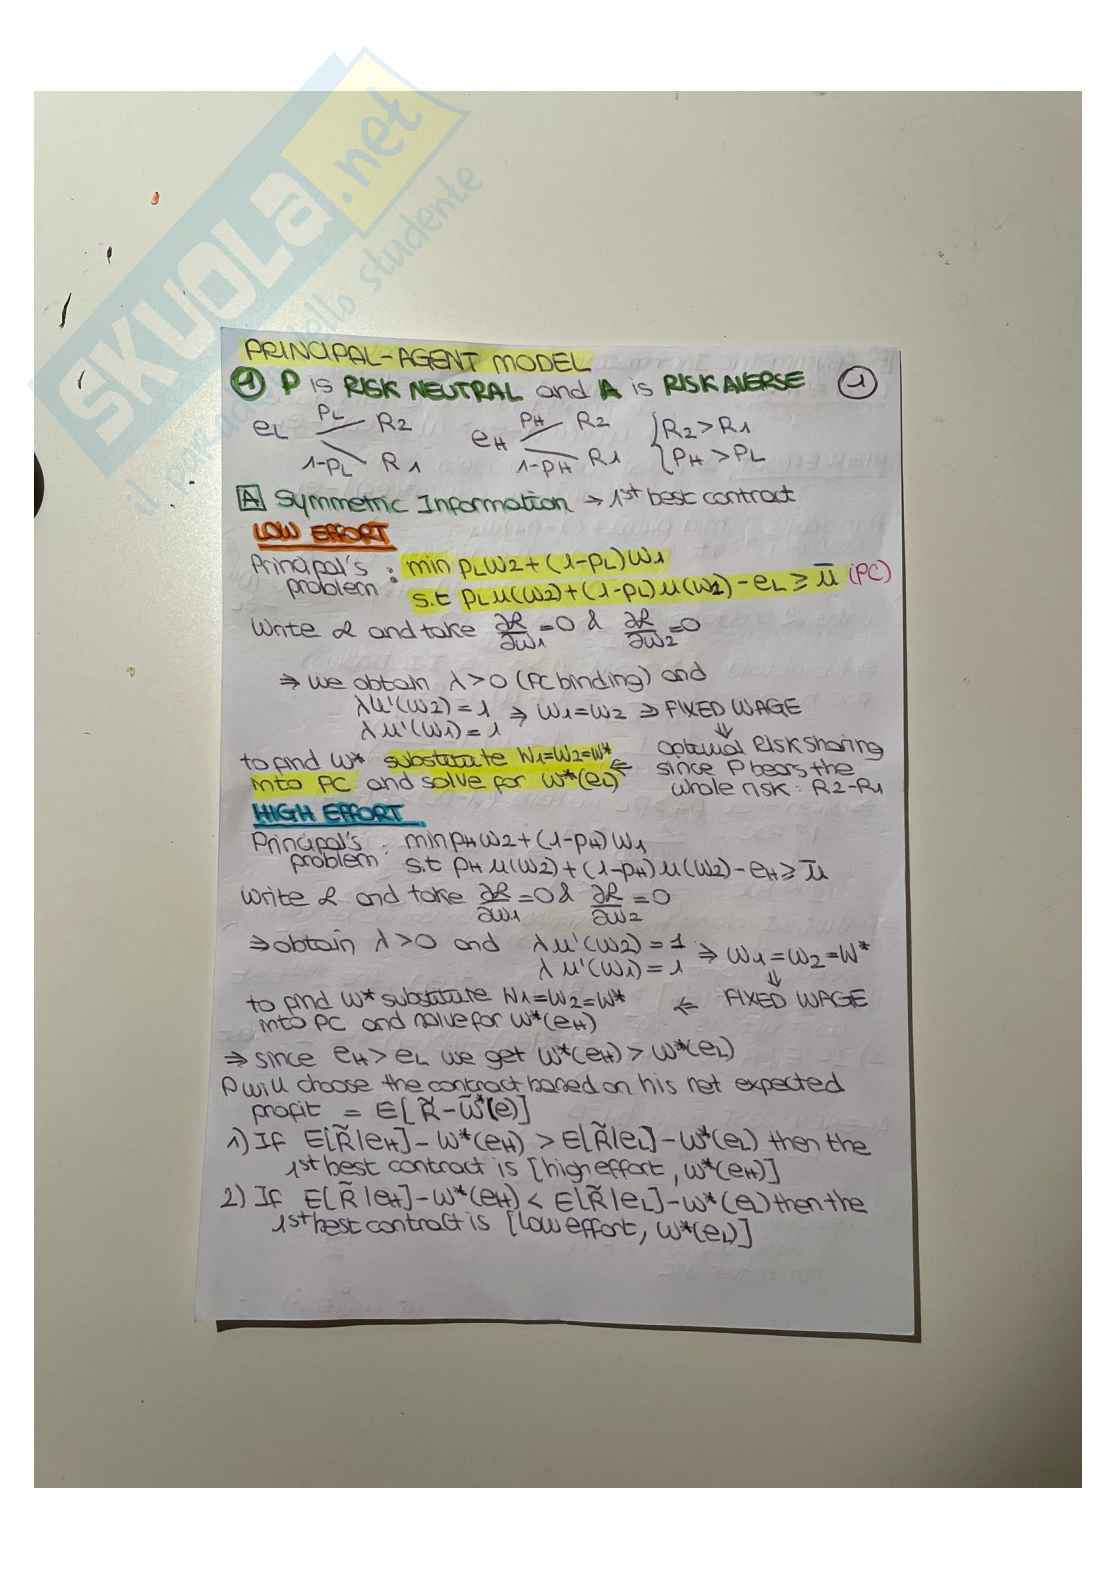 SKUOLA.net
il paradiso dello studente
PRINCIPAL-AGENT MODEL
1 P is RISK NEUTRAL and A is RISK AVERSE 1
eL pL R2 1-pL R1 eH pH R2 1-pH R1 { R2 > R1 pH > pL
A Symmetric Information → 1st best contract
LOW EFFORT
Principal's problem : min pLw2 + (1-pL)w1
s.t pL u(w2) + (1-pL) u(w2) - eL ≥ ū (PC)
Write L and take ∂L/∂w1 = 0 & ∂L/∂w2 = 0
⇒ we obtain λ > 0 (PC binding) and
λu'(w2) = 1 ⇒ w1 = w2 ⇒ FIXED WAGE
λu'(w1) = 1 ⇓
to find w* substitute W1=W2=W* ⇐ optimal Risk sharing
into PC and solve for w*(eL) since P bears the
whole risk: R2-R1
HIGH EFFORT
Principal's problem : min pHw2 + (1-pH)w1
s.t pH u(w2) + (1-pH) u(w2) - eH ≥ ū
Write L and take ∂L/∂w1 = 0 & ∂L/∂w2 = 0
⇒ obtain λ > 0 and λu'(w2) = 1 ⇒ w1 = w2 = W*
λu'(w1) = 1 ⇓
to find W* substitute W1=W2=W* ⇐ FIXED WAGE
into PC and solve for W*(eH)
⇒ since eH > eL we get W*(eH) > W*(eL)
P will choose the contract based on his net expected
profit = E[R̃ - w̃*(e)]
1) If E[R̃|eH] - W*(eH) > E[R̃|eL] - W*(eL) then the
1st best contract is [high effort, W*(eH)]
2) If E[R̃|eH] - W*(eH) < E[R̃|eL] - W*(eL) then the
1st best contract is [low effort, W*(eL)]